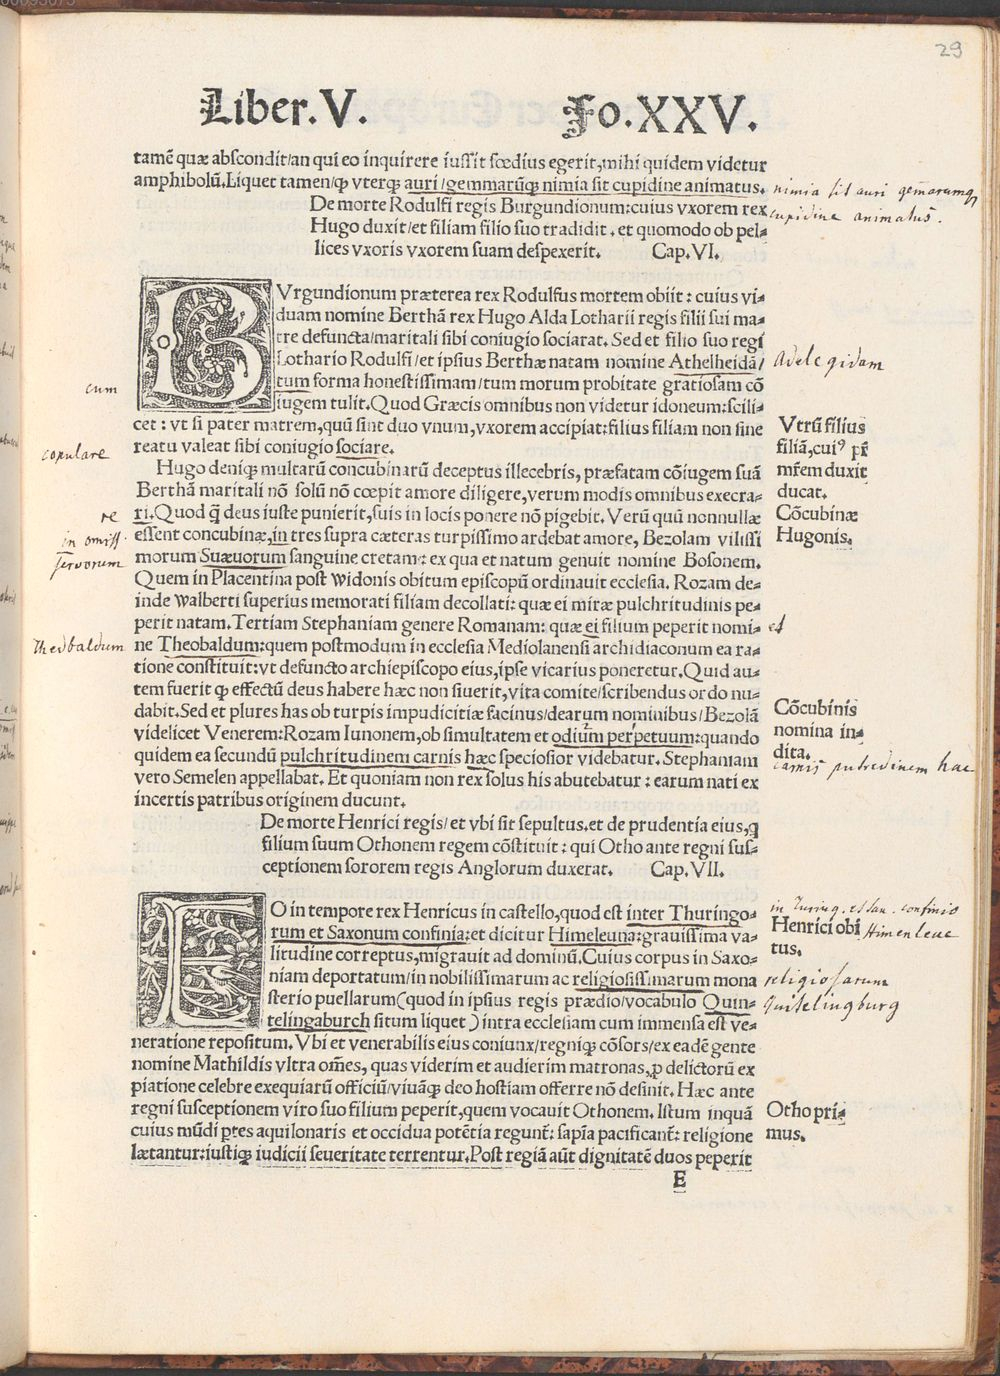 29
Liber. V. Fo. XXV.
tamē quæ abscondit/an qui eo inquirere iussit fœdius egerit,mihi quidem videtur
amphibolū.Liquet tamen/ꝙ vterqꝫ auri/gemmarūqꝫ nimia sit cupidine animatus.
nimia sit auri gemarumqꝫ
cupidine animatus.
De morte Rodulfi regis Burgundionum:cuius vxorem rex
Hugo duxit/et filiam filio suo tradidit . et quomodo ob pel⸗
lices vxoris vxorem suam despexerit. Cap.VI.
BVrgundionum præterea rex Rodulfus mortem obiit : cuius vi⸗
duam nomine Berthā rex Hugo Alda Lotharii regis filii sui ma⸗
tre defuncta/maritali sibi coniugio sociarat. Sed et filio suo regi
Lothario Rodulfi/et ipsius Berthæ natam nomine Athelheidā/
Adelegidam
tum forma honestissimam/tum morum probitate gratiosam cō
cum
iugem tulit.Quod Græcis omnibus non videtur idoneum:scili⸗
cet : vt si pater matrem,quū sint duo vnum,vxorem accipiat:filius filiam non sine
reatu valeat sibi coniugio sociare.
copulare
Vtrū filius
filiā,cuiꝰ pr̄
mr̄em duxit
ducat.
Hugo deniqꝫ multarū concubinarū deceptus illecebris, præfatam cōiugem suā
Berthā maritali nō solū nō cœpit amore diligere,verum modis omnibus execra⸗
ri.Quod q̄ deus iuste punierit,suis in locis ponere nō pigebit. Verū quū nonnullæ
re
Cōcubinæ
Hugonis.
essent concubinæ,in tres supra cæteras turpissimo ardebat amore, Bezolam vilissi
in omiss.
morum Suæuorum sanguine cretam: ex qua et natum genuit nomine Bosonem.
servorum
Quem in Placentina post Widonis obitum episcopū ordinauit ecclesia. Rozam de⸗
inde Walberti superius memorati filiam decollati: quæ ei miræ pulchritudinis pe⸗
perit natam. Tertiam Stephaniam genere Romanam: quæ ei filium peperit nomi⸗
et
ne Theobaldum:quem postmodum in ecclesia Mediolanensi archidiaconum ea ra⸗
Thedbaldum
tione constituit:vt defuncto archiepiscopo eius,ipse vicarius poneretur.Quid au⸗
tem fuerit ꝙ effectū deus habere hæc non siuerit,vita comite/scribendus ordo nu⸗
dabit.Sed et plures has ob turpis impudicitiæ facinus/dearum nominibus/Bezolā
videlicet Venerem:Rozam Iunonem,ob simultatem et odium perpetuum:quando
quidem ea secundū pulchritudinem carnis hæc speciosior videbatur. Stephaniam
vero Semelen appellabat. Et quoniam non rex solus his abutebatur : earum nati ex
incertis patribus originem ducunt.
Cōcubinis
nomina in⸗
dita.
carnis putredinem hæc
De morte Henrici regis/et vbi sit sepultus.et de prudentia eius,ꝗ
filium suum Othonem regem cōstituit : qui Otho ante regni sus⸗
ceptionem sororem regis Anglorum duxerat. Cap.VII.
EO in tempore rex Henricus in castello,quod est inter Thuringo⸗
rum et Saxonum confinia:et dicitur Himeleuna:grauissima va⸗
Henrici obi
tus.
Himenleue
litudine correptus,migrauit ad dominū.Cuius corpus in Saxo⸗
niam deportatum/in nobilissimarum ac religiosissimarum mona
religiosarum
sterio puellarum(quod in ipsius regis prædio/vocabulo Quin⸗
Quitelingburg
telingaburch situm liquet)intra ecclesiam cum immensa est ve⸗
neratione repositum.Vbi et venerabilis eius coniunx/regniqꝫ cōsors/ex eadē gente
nomine Mathildis vltra oēs, quas viderim et audierim matronas,ꝓ delictorū ex
piatione celebre exequiarū officiū/viuāqꝫ deo hostiam offerre nō desinit. Hæc ante
regni susceptionem viro suo filium peperit,quem vocauit Othonem. Istum inquā
Otho pri⸗
mus.
cuius mūdi ꝑtes aquilonaris et occidua potētia regunt̄: sapīa pacificant̄: religione
lætantur:iustiqꝫ iudicii seueritate terrentur.Post regiā aūt dignitatē duos peperit
E